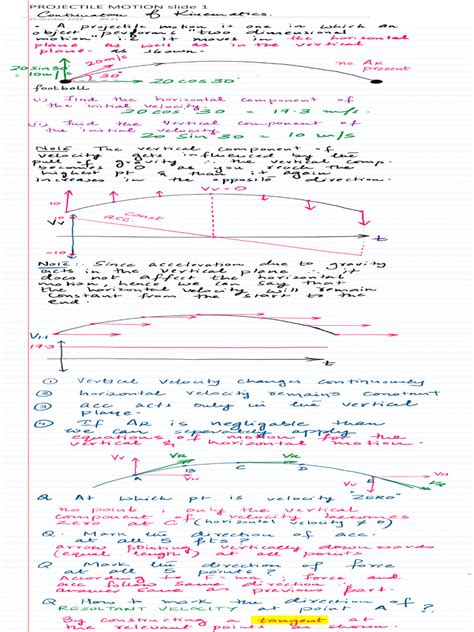 PROJECTILE MOTION slide 1
Continuation of Kinematics.
A projectile motion is one in which an
object performs "two dimensional
motion" i.e it moves in the horizontal
plane as well as in the vertical
plane as shown.
20 sin 30
= 10 m/s
20 m/s
30°
20 cos 30
no AR
present
football
i) Find the horizontal component of
the initial velocity.
20 cos 30 = 17.3 m/s
ii) Find the vertical component of
the initial velocity
20 sin 30 = 10 m/s
Note The vertical component of
velocity gets influenced by the
pull of gravity as the vertical comp.
becomes 0 as you reach the
highest pt & then it again
increases in the opposite direction.
Vv = 0
10
Vv
acc const
-10
t
Note: Since acceleration due to gravity
acts in the vertical plane ∴ it
does not affect the horizontal
motion, hence we can say that
the horizontal velocity will remain
constant from the start to the
end.
VH
17.3
t
① Vertical velocity changes continuously
② horizontal velocity remains constant
③ acc acts only in the vertical
plane.
④ If AR is negligible then
we can separately apply
equations of motion for the
vertical & horizontal motion.
Vv
VR
A
VH
B
C
VR
D
E
VH
Vv
VR
Q At which pt is velocity "ZERO"
no point; only the vertical
component of velocity becomes
zero at C (horizontal velocity ≠ 0)
Q. Mark the direction of acc.
at all 5 pts?
arrow pointing vertically downwards
(equal length) at all points
Q Mark the direction of force
at all 5 points?
According to F=ma force and
acc follow same direction
answer same as previous part.
Q How to mark the direction of
RESULTANT VELOCITY at point A?
By constructing a tangent at
the relevant points as shown.